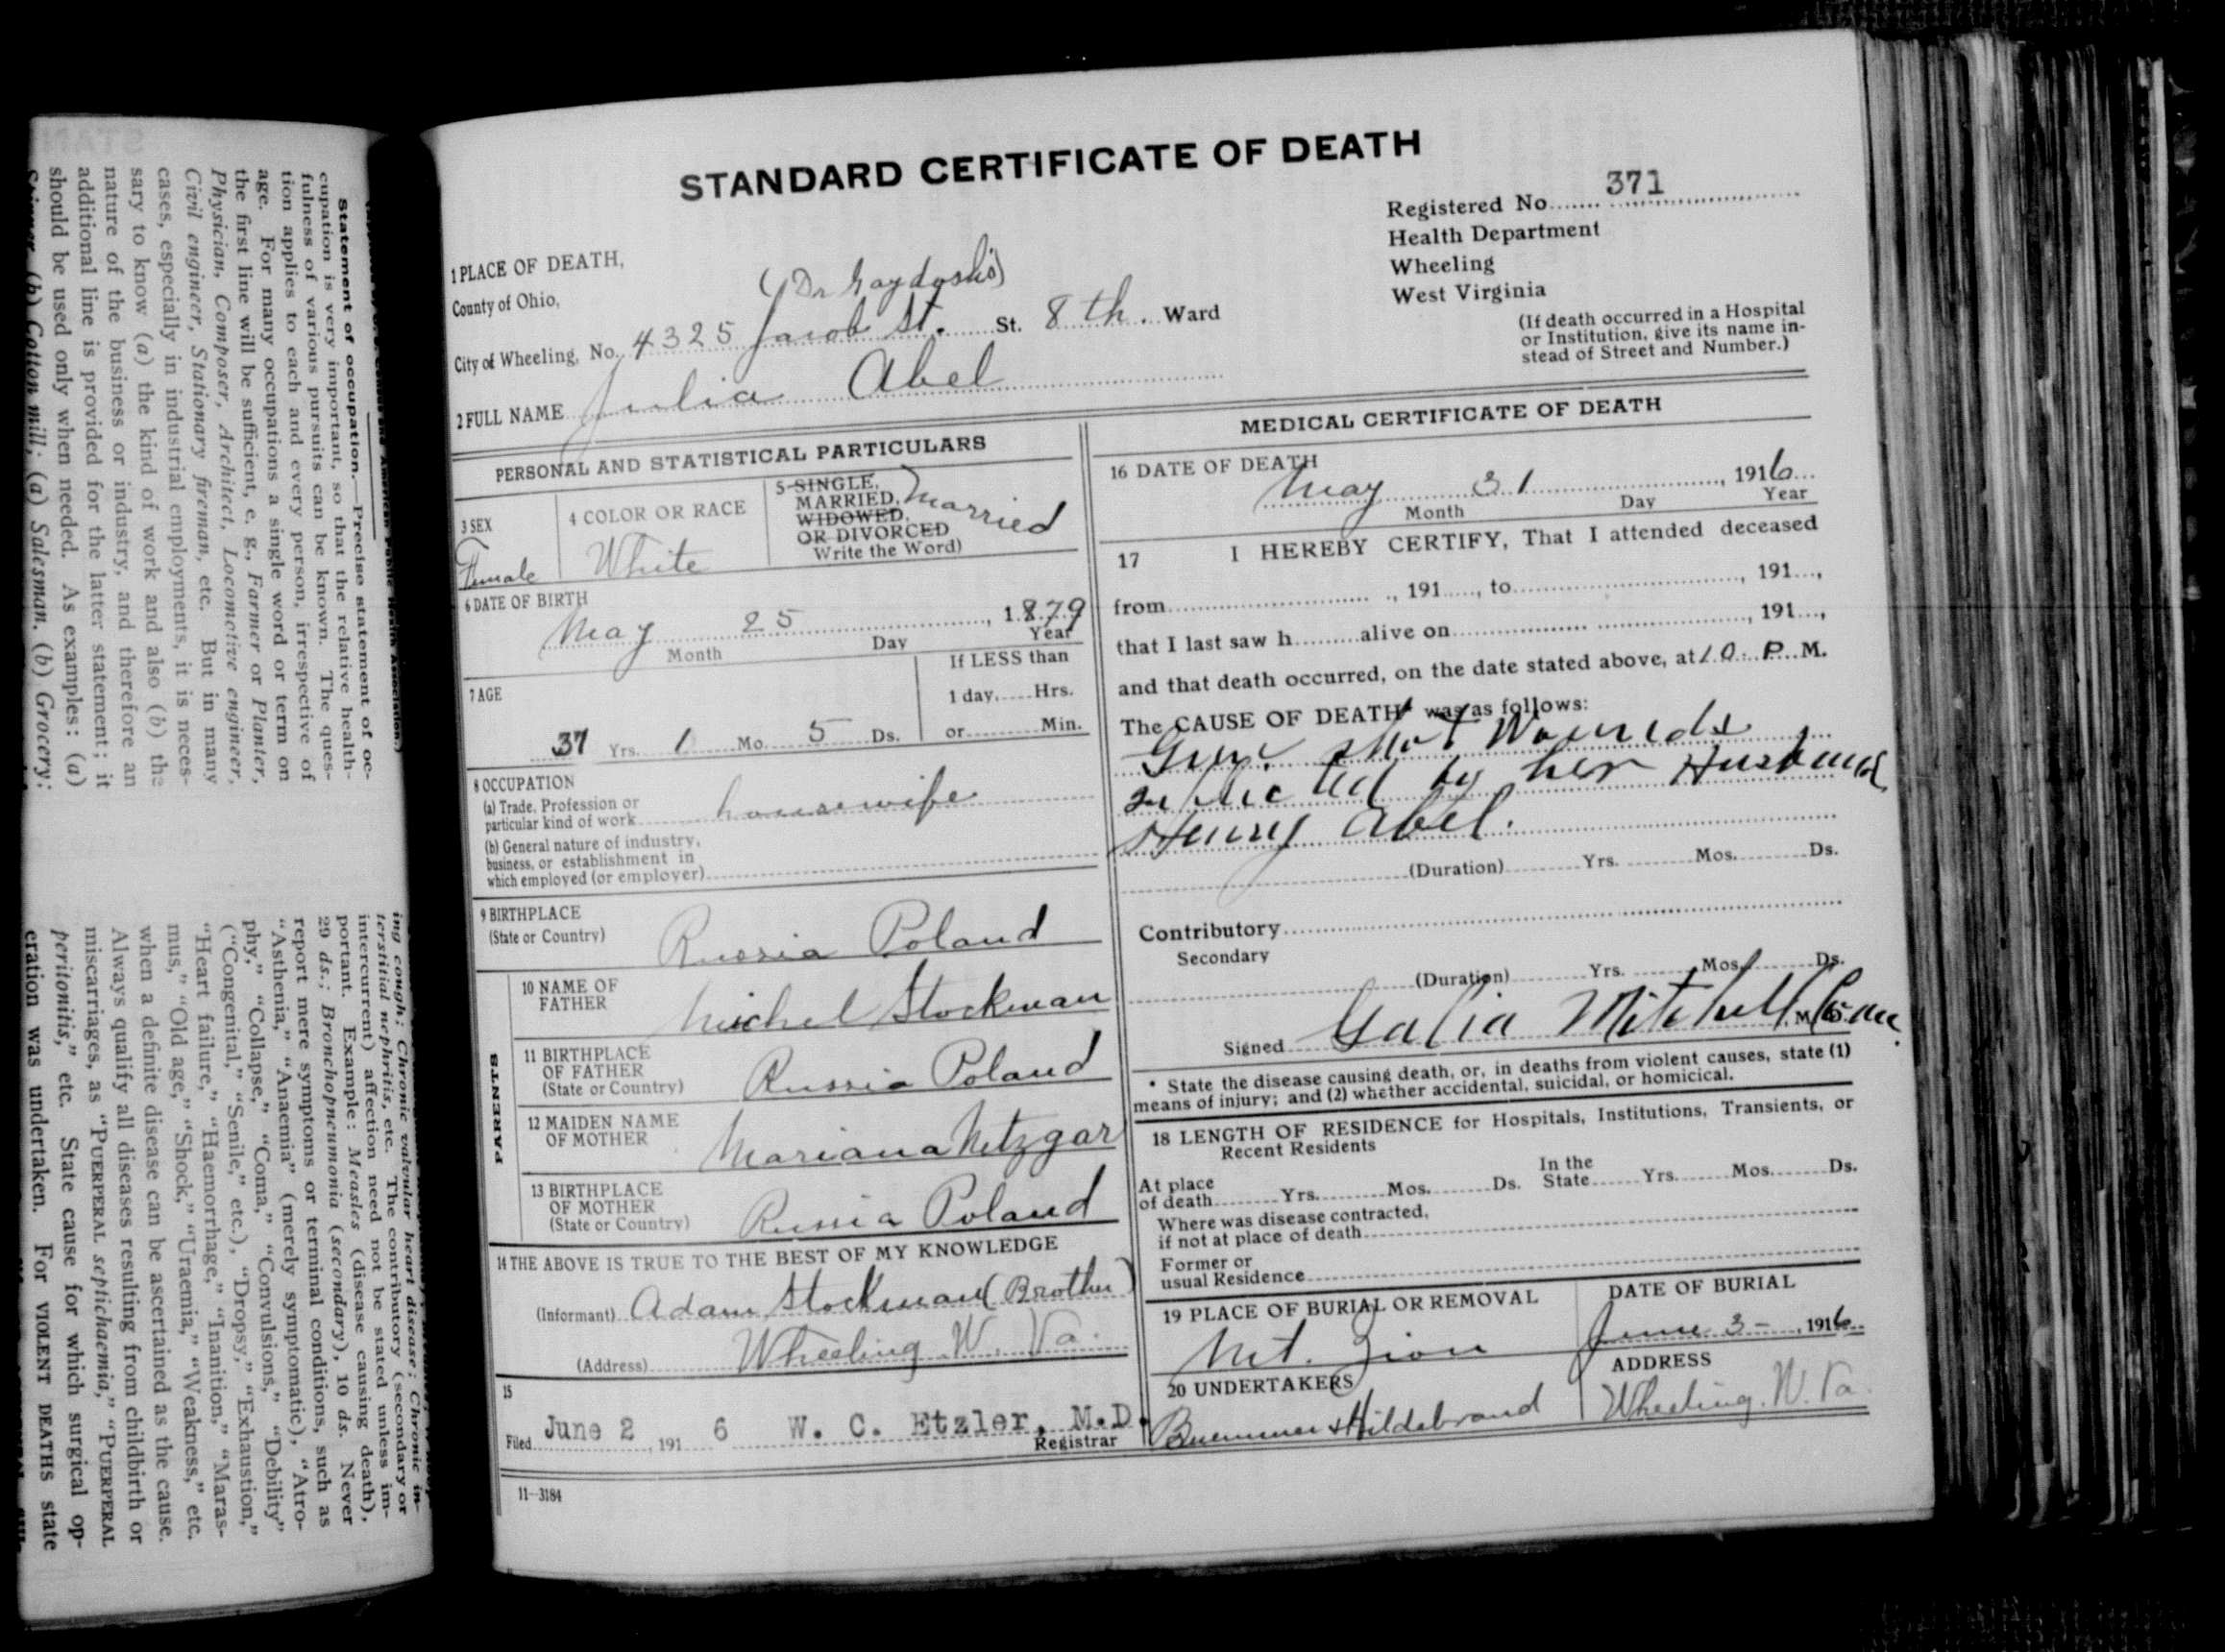 STANDARD CERTIFICATE OF DEATH
Registered No. 371
Health Department
Wheeling
West Virginia
(If death occurred in a Hospital
or Institution, give its name in-
stead of Street and Number.)
1 PLACE OF DEATH,
County of Ohio,
(Dr Gaydosh's)
City of Wheeling, No. 4325 Jacob St. St. 8th. Ward
2 FULL NAME Julia Abel
PERSONAL AND STATISTICAL PARTICULARS
3 SEX
Female
4 COLOR OR RACE
White
5 SINGLE,
MARRIED,
WIDOWED,
OR DIVORCED
Write the Word)
Married
6 DATE OF BIRTH
May 25, 1879
Month Day Year
7 AGE
37 Yrs. 1 Mo. 5 Ds.
If LESS than
1 day, Hrs.
or Min.
8 OCCUPATION
(a) Trade, Profession or
particular kind of work housewife
(b) General nature of industry,
business, or establishment in
which employed (or employer)
9 BIRTHPLACE
(State or Country) Russia Poland
PARENTS
10 NAME OF
FATHER Michel Stockman
11 BIRTHPLACE
OF FATHER
(State or Country) Russia Poland
12 MAIDEN NAME
OF MOTHER Mariana Netzgar
13 BIRTHPLACE
OF MOTHER
(State or Country) Russia Poland
14 THE ABOVE IS TRUE TO THE BEST OF MY KNOWLEDGE
(Informant) Adam Stockman (Brother)
(Address) Wheeling W. Va.
15
Filed June 2, 191 6 W. C. Etzler, M.D.
Registrar
11-3184
MEDICAL CERTIFICATE OF DEATH
16 DATE OF DEATH
May 31, 1916
Month Day Year
17 I HEREBY CERTIFY, That I attended deceased
from , 191 , to , 191 ,
that I last saw h alive on , 191 ,
and that death occurred, on the date stated above, at 10 P. M.
The CAUSE OF DEATH* was as follows:
Gun shot Wounds
inflicted by her Husband
Henry Abel.
(Duration) Yrs. Mos. Ds.
Contributory
Secondary
(Duration) Yrs. Mos. Ds.
Signed Mitchell M.
* State the disease causing death, or, in deaths from violent causes, state (1)
means of injury; and (2) whether accidental, suicidal, or homicical.
18 LENGTH OF RESIDENCE for Hospitals, Institutions, Transients, or
Recent Residents
At place
of death Yrs. Mos. Ds.
In the
State Yrs. Mos. Ds.
Where was disease contracted,
if not at place of death
Former or
usual Residence
19 PLACE OF BURIAL OR REMOVAL
Mt. Zion
DATE OF BURIAL
June 3-, 1916
20 UNDERTAKERS
Buemmer & Hildebrand
ADDRESS
Wheeling. W. Va.
Statement of occupation.—Precise statement of oc-
cupation is very important, so that the relative health-
fulness of various pursuits can be known. The ques-
tion applies to each and every person, irrespective of
age. For many occupations a single word or term on
the first line will be sufficient, e. g., Farmer or Planter,
Physician, Composer, Architect, Locomotive engineer,
Civil engineer, Stationary fireman, etc. But in many
cases, especially in industrial employments, it is neces-
sary to know (a) the kind of work and also (b) the
nature of the business or industry, and therefore an
additional line is provided for the latter statement; it
should be used only when needed. As examples: (a)
Spinner, (b) Cotton mill; (a) Salesman, (b) Grocery;
ing cough; Chronic valvular heart disease; Chronic in-
terstitial nephritis, etc. The contributory (secondary or
intercurrent) affection need not be stated unless im-
portant. Example: Measles (disease causing death),
29 ds.; Bronchopneumonia (secondary), 10 ds. Never
report mere symptoms or terminal conditions, such as
"Asthenia," "Anaemia" (merely symptomatic), "Atro-
phy," "Collapse," "Coma," "Convulsions," "Debility"
("Congenital," "Senile," etc.), "Dropsy," "Exhaustion,"
"Heart failure," "Haemorrhage," "Inanition," "Maras-
mus," "Old age," "Shock," "Uraemia," "Weakness," etc.
when a definite disease can be ascertained as the cause.
Always qualify all diseases resulting from childbirth or
miscarriages, as "PUERPERAL septichaemia," "PUERPERAL
peritonitis," etc. State cause for which surgical op-
eration was undertaken. For VIOLENT DEATHS state